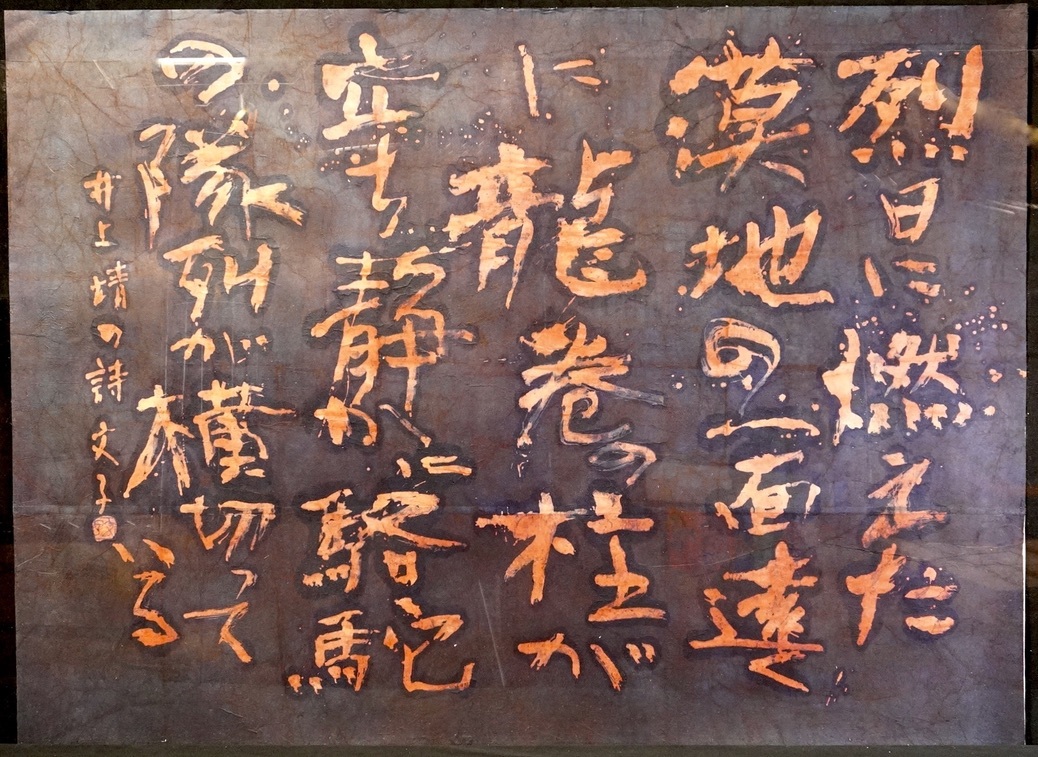 烈日に燃えた
漠地の一面遠く
に龍巻の柱が
立ち静かに駱駝
の隊列が横切って
いる
井上靖の詩 文子